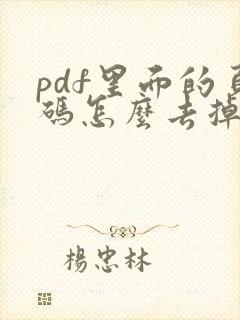 pdf里面的頁
碼怎麼去掉
楊忠林